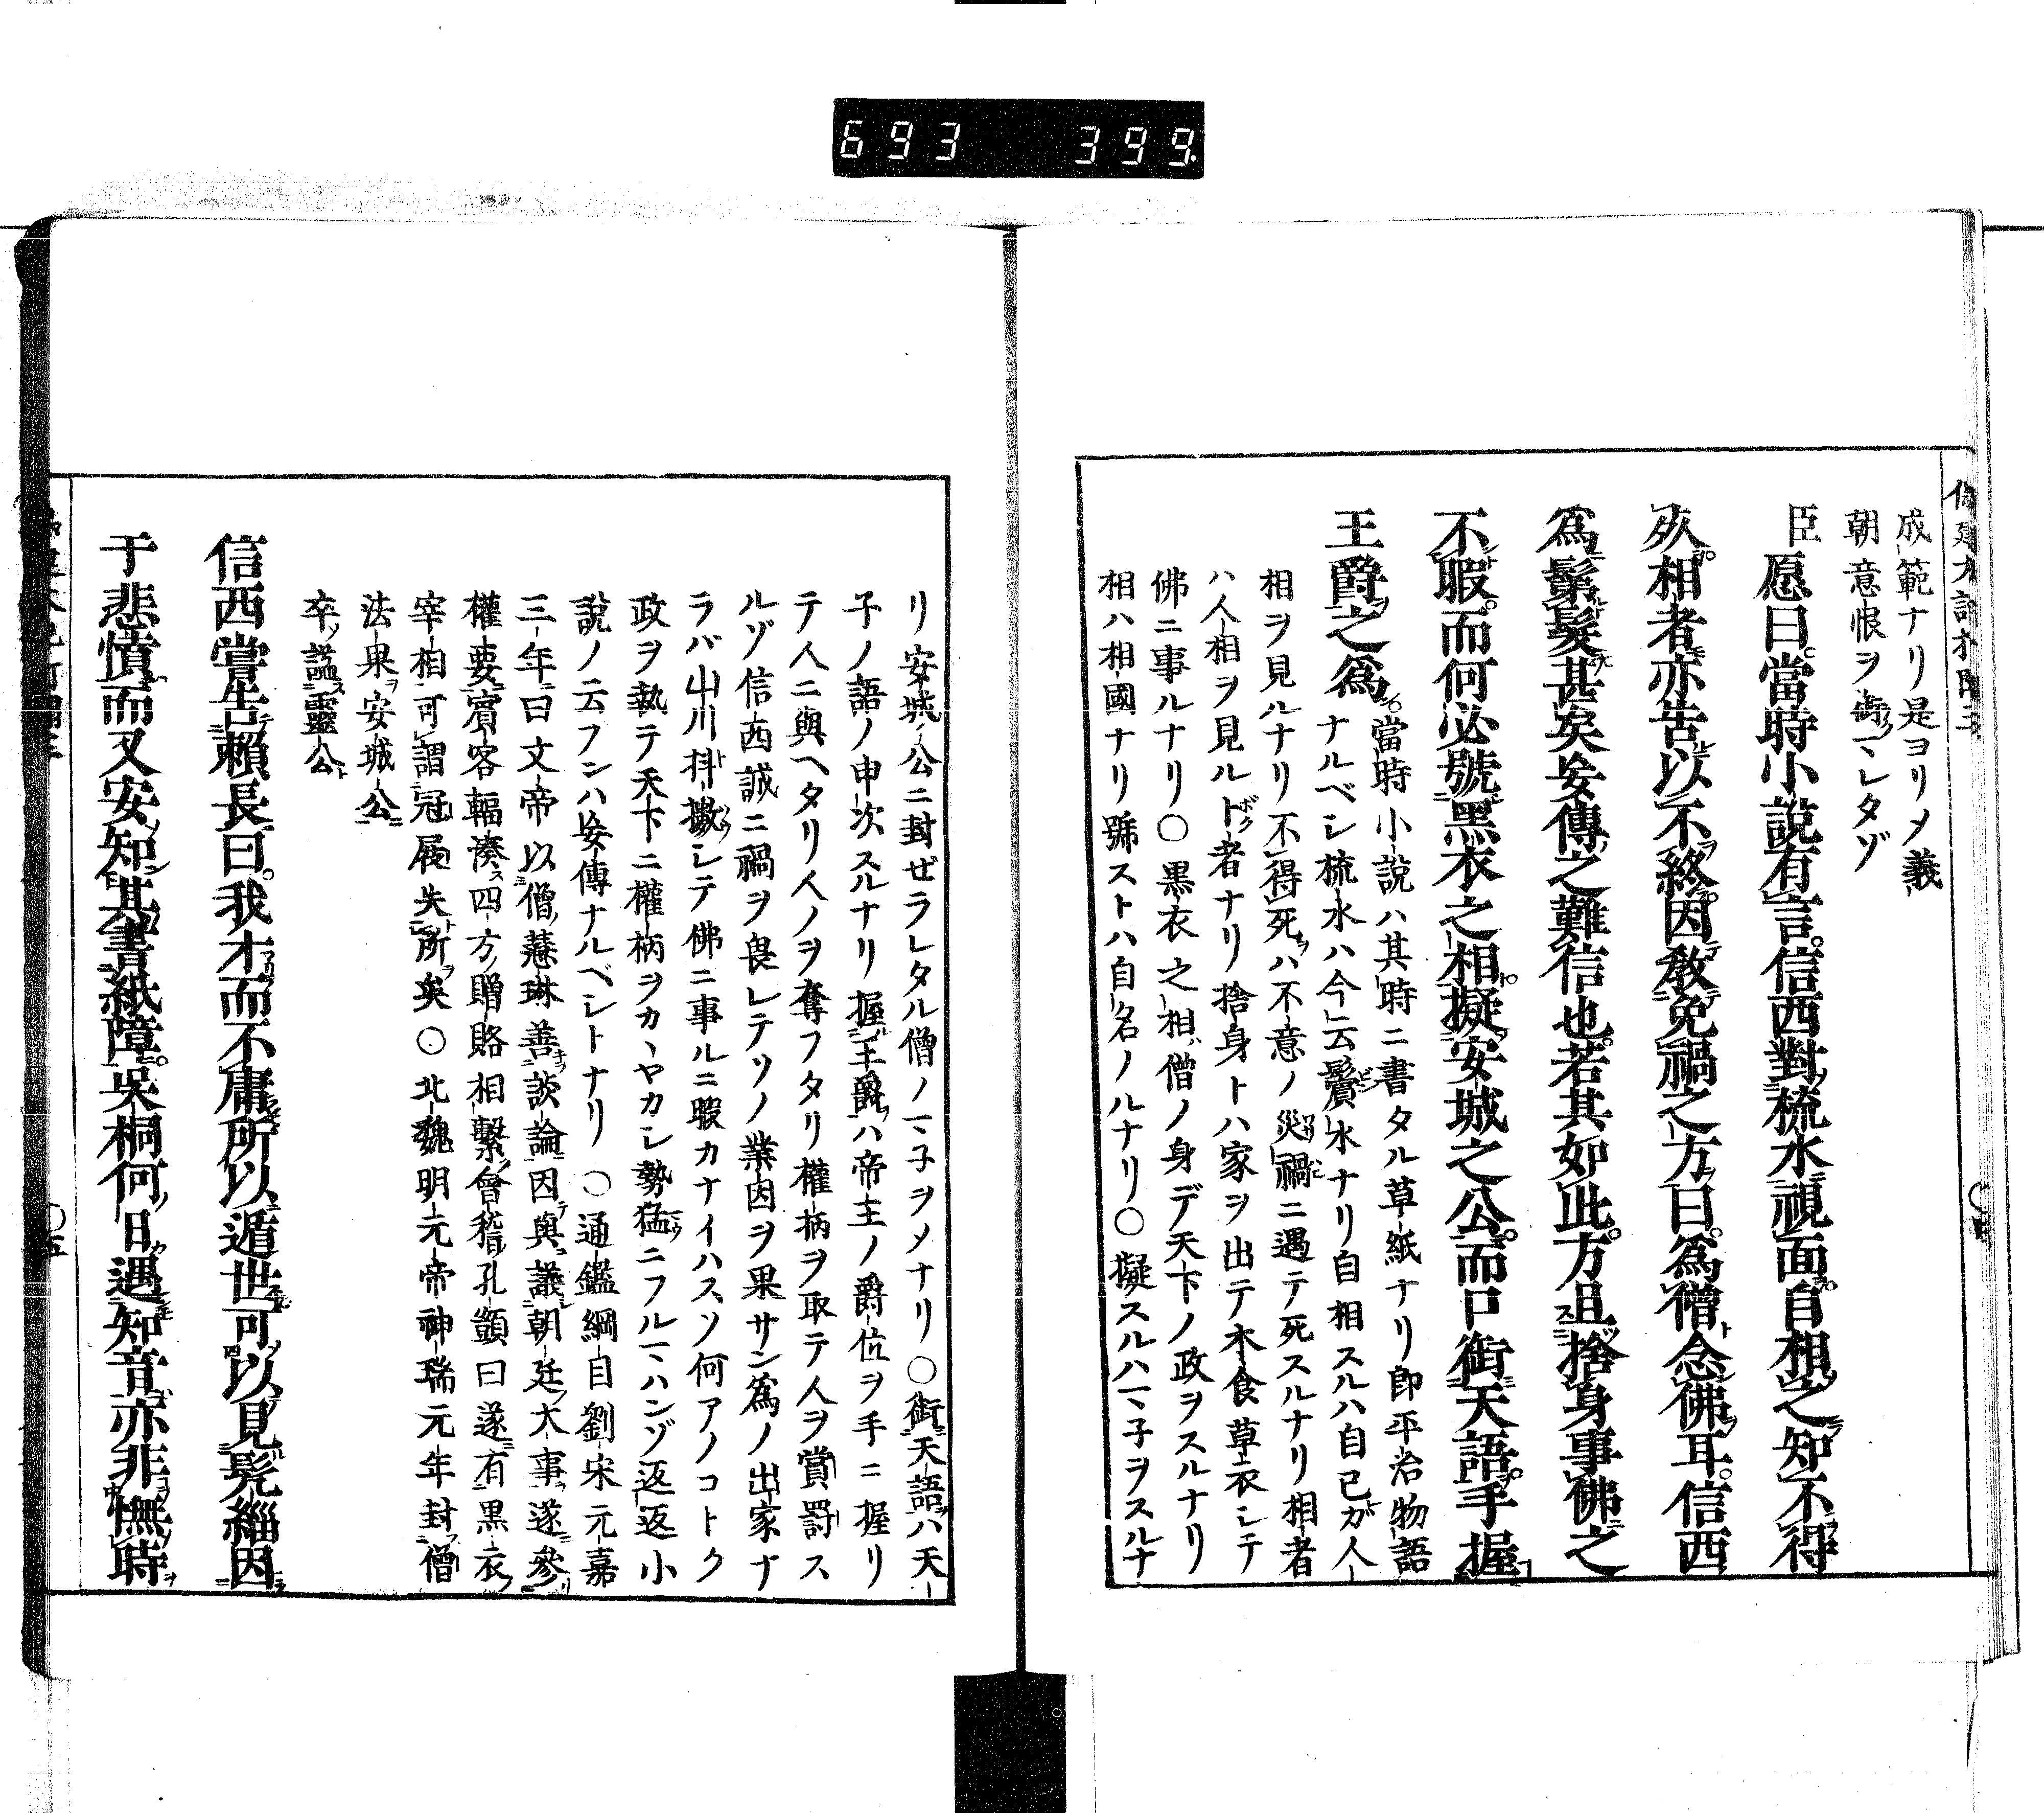 693 399
成範ナリ是ヨリメ義
朝意恨ヲ銜ンレタゾ
臣愿曰當時小說有言信西對梳水視面自相之知不得
死相者亦告以不終因敎免禍之方曰爲僧念佛耳信西
爲鬄髮甚矣妄傳之難信也若其如此方且捨身事佛之
不暇而何必號黑衣之相擬安城之公而口銜天語手握
王爵之爲
當時小說ハ其時ニ書タル草紙ナリ卽平治物語
ナルベシ梳水ハ今云鬢水ナリ自相スルハ自己ガ人
相ヲ見ルナリ不得死ハ不意ノ災禍ニ遇テ死スルナリ相者
ハ人相ヲ見ル卜者ナリ捨身トハ家ヲ出テ木食草衣シテ
佛ニ事ルナリ〇黑衣之相僧ノ身デ天下ノ政ヲスルナリ
相ハ相國ナリ號ストハ自名ノルナリ〇擬スルハマ子ヲスルナ
リ安城公ニ封ゼラレタル僧ノマ子ヲメナリ〇銜天語ハ天
子ノ語ノ申次スルナリ握王爵ハ帝主ノ爵位ヲ手ニ握リ
テ人ニ與ヘタリ人ノヲ奪フタリ權柄ヲ取テ人ヲ賞罰ス
ルゾ信西誠ニ禍ヲ畏レテソノ業因ヲ果サン爲ノ出家ナ
ラバ山川抖擻シテ佛ニ事ルニ暇カナイハスソ何アノコトク
政ヲ執テ天下ニ權柄ヲカヽヤカシ勢猛ニフルマハンゾ返返小
說ノ云フンハ妄傳ナルベシトナリ〇通鑑綱目劉宋元嘉
三年曰文帝以僧慧琳善談論因與議朝廷大事遂參
權要賓客輻湊四方贈賂相繫會稽孔顗曰遂有黑衣
宰相可謂冠屐失所矣〇北魏明元帝神瑞元年封僧
法果安城公
卒諡靈公
信西嘗告賴長曰我才而不庸所以遁世可以見髡緇因
于悲憤而又安知其書紙障吳桐何日遇知音亦非憮時